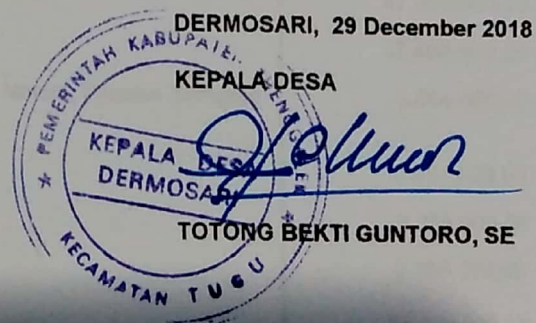 DERMOSARI, 29 December 2018
KEPALA DESA
PEMERINTAH KABUPATEN TRENGGALEK
KEPALA DESA
DERMOSARI
KECAMATAN TUGU
TOTONG BEKTI GUNTORO, SE